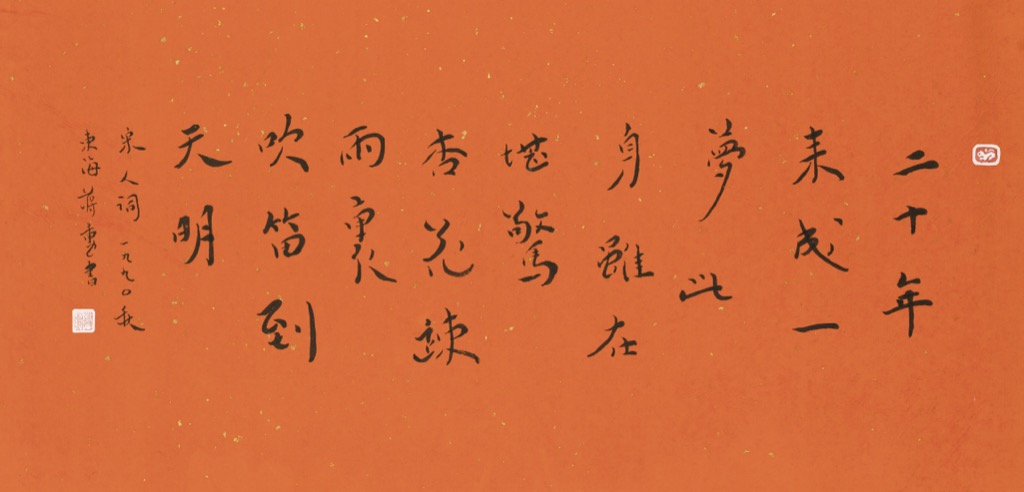 二十年
来成一
夢此
身雖在
堪驚
杏花疎
雨裏
吹笛到
天明
宋人詞 一九九〇秋
東海蔣重書